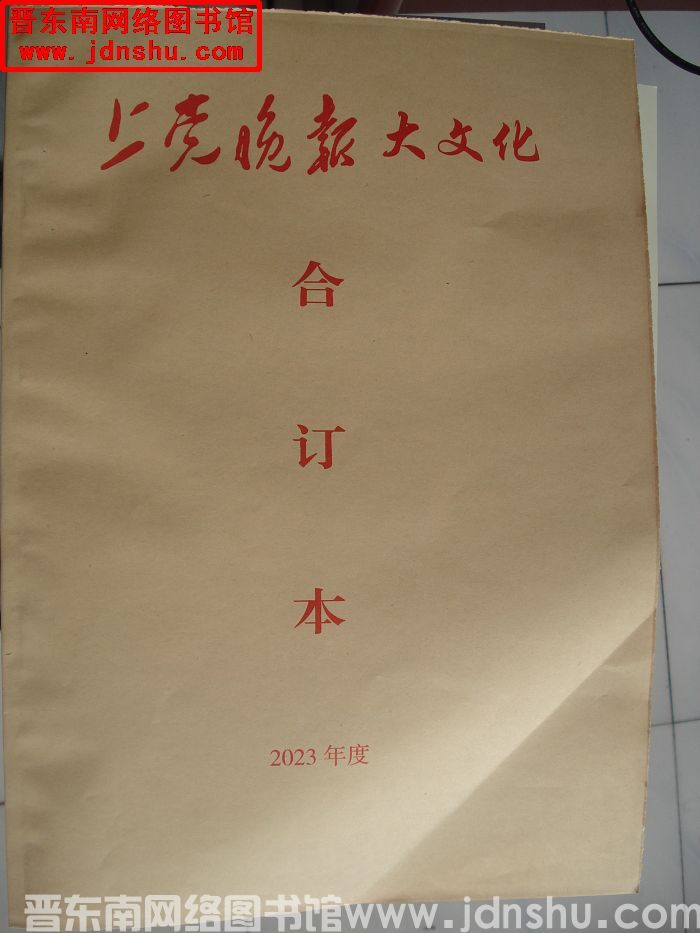 晋东南网络图书馆
www.jdnshu.com
上党晚报大文化
合
订
本
2023 年度
晋东南网络图书馆www.jdnshu.com